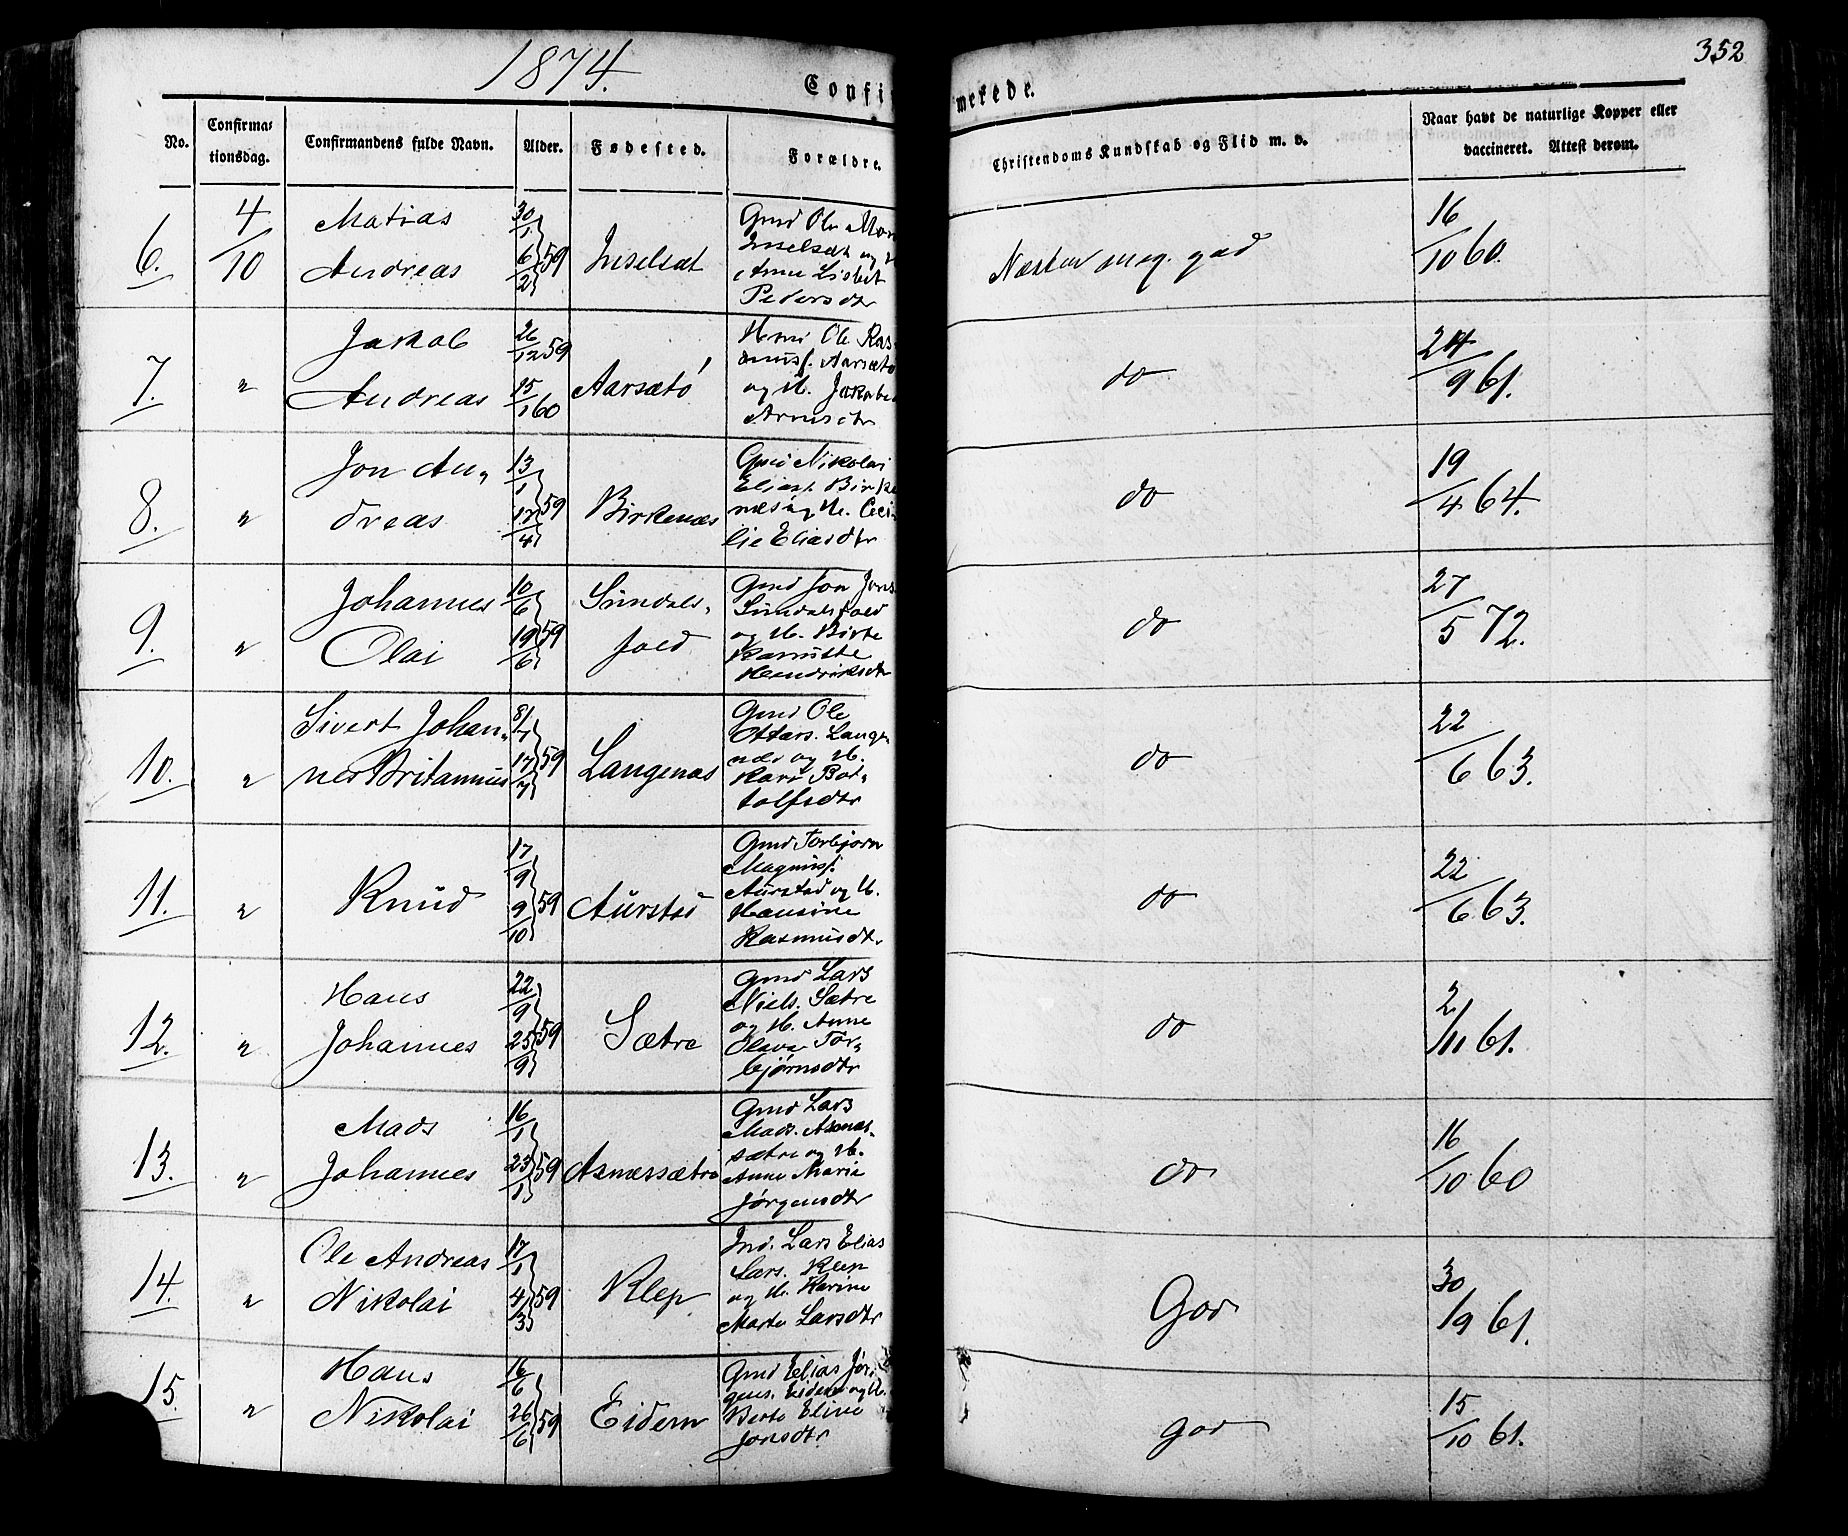 1874.
Confir
merede.
352
No.
Confirma-
tionsdag.
Confirmandens fulde Navn.
Alder.
Fødested.
Forældre.
Christendoms Kundskab og Flid m. v.
Naar havt de naturlige Kopper eller
vaccineret. Attest derom.
6.
4/10
Matias
Andreas
30/1
6/2 59
Inselsæt
Gmd Ole
Inselsæt og
Anne Lisbet
Pedersdtr
Næsten meg. god
16/10 60.
7.
"
Jakob
Andreas
26/12 59
15/1 60
Aarsætö
Ole Ras-
musf. Aarsætö
og H. Jakobe
Arnesdtr
do
9 61.
8.
"
Jon An-
dreas
13/1
17/4 59
Birkenæs
Gmd Nikolai
Eliast Birke
næs og H. Ceci-
lie Eliasdtr
do
19/4 64.
9.
"
Johannes
Olai
10/6
19/6 59
Sundals-
fold
Gmd Jon Jons
Sundalsfold
og H. Birte
Hendriksdtr
do
27/5 72.
10.
"
Sivert Johan-
nes Britannus
8/7
17/7 59
Langenæs
Gmd Ole
Ottars. Lange-
næs og H.
Kari Bot-
tolfsdtr
do
22/6 63.
11.
"
Knud
17/9
9/10 59
Aurstad
Gmd Torbjørn
Magnusf.
Aurstad og H.
Hansine
Rasmusdtr
do
22/6 63.
12.
"
Hans
Johannes
22/9
25/9 59
Sætre
Gmd Lars
Niels. Sætre
og H. Anne
Olava Tor-
bjørnsdtr
do
2/11 61.
13.
"
Mads
Johannes
16/1
23/1 59
Asnæssætre
Gmd Lars
Mads. Asnæs-
sætre og H.
Anne Marie
Jørgensdtr
do
16/10 60
14.
"
Ole Andreas
Nikolai
17/1
4/3 59
Klep
Ind. Lars Elias
Lars. Klep
og H. Karine
Marte Larsdtr
God
30/9 61.
15.
"
Hans
Nikolai
16/6
26/6 59
Eidem
Gmd Elias Jør-
gens. Eidem og H.
Berte Eline
Jonsdtr
god
15/10 61.